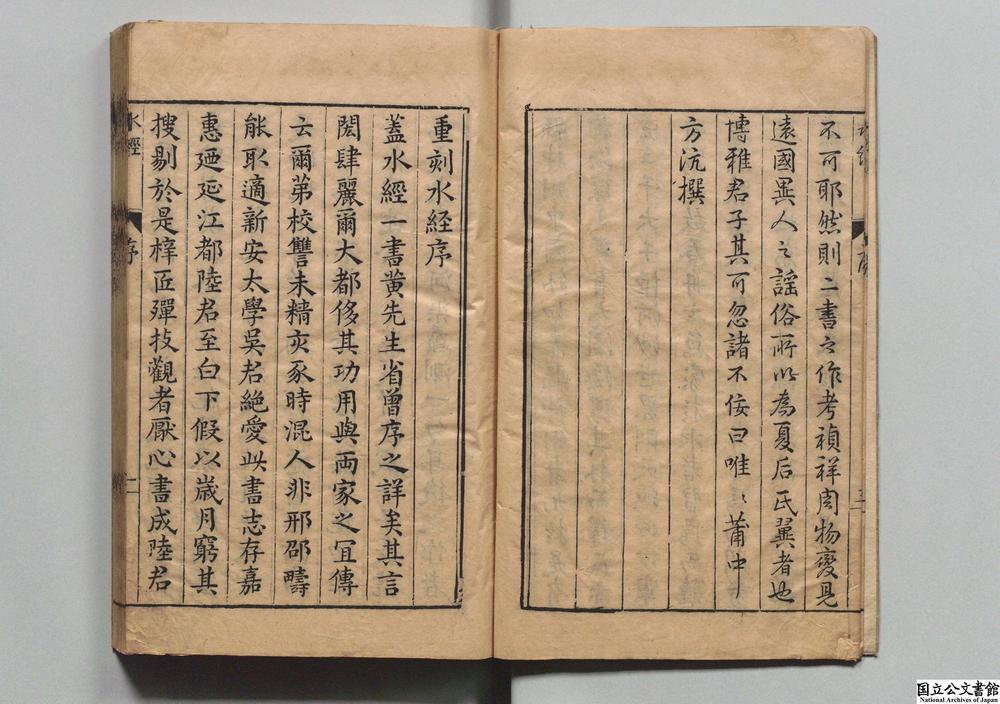 不可耶然則二書之作考禎祥周物變見
遠國異人之謡俗所以為夏后氏翼者也
博雅君子其可忽諸不佞曰唯〻莆中
方沆撰
重刻水經序
蓋水經一書黄先生省曽序之詳矣其言
閎肆麗爾大都侈其功用與兩家之冝傳
云爾苐校讐未精亥豕時混人非邢邵疇
能取適新安太學吳君絶愛此書志存嘉
惠廼延江都陸君至白下假以歳月窮其
搜剔於是梓匠殫技觀者厭心書成陸君
水經
序
國立公文書館
National Archives of Japan